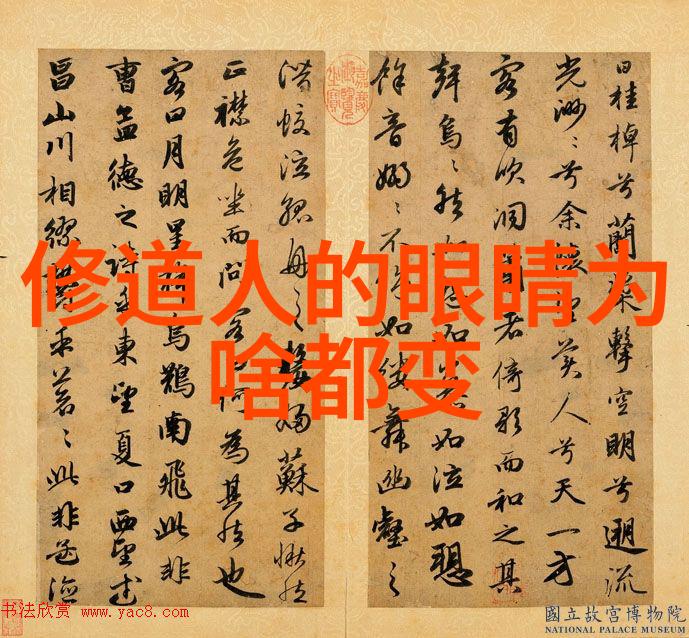 曰桂棹兮蘭槳擊空明兮遡流
光渺〻兮余懷望美人兮天一方
客有吹洞簫者倚歌而和之其
聲烏〻然如怨如慕如泣如愬
餘音嫋〻不絕如縷舞幽壑之
嘉慶御覽之寶
潛蛟泣孤舟之嫠婦蘇子愀然
正襟危坐而問客曰何為其然也
客曰月明星稀烏鵲南飛此非
曹孟德之詩乎東望夏口西望武
昌山川相繆鬱乎蒼〻此非孟德
修道人的眼睛为
啥都变
书法欣赏 www.yac8.com
國立故宮博物院
NATIONAL PALACE MUSEUM